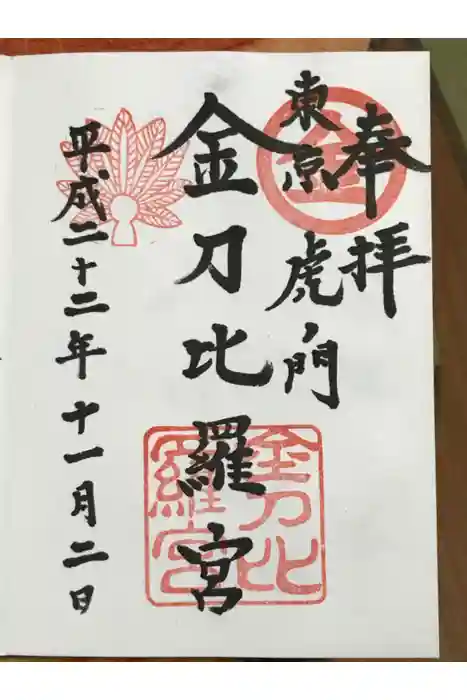 奉拝
東京虎ノ門
金刀比羅宮
平成二十二年十一月二日
金
金刀比羅宮